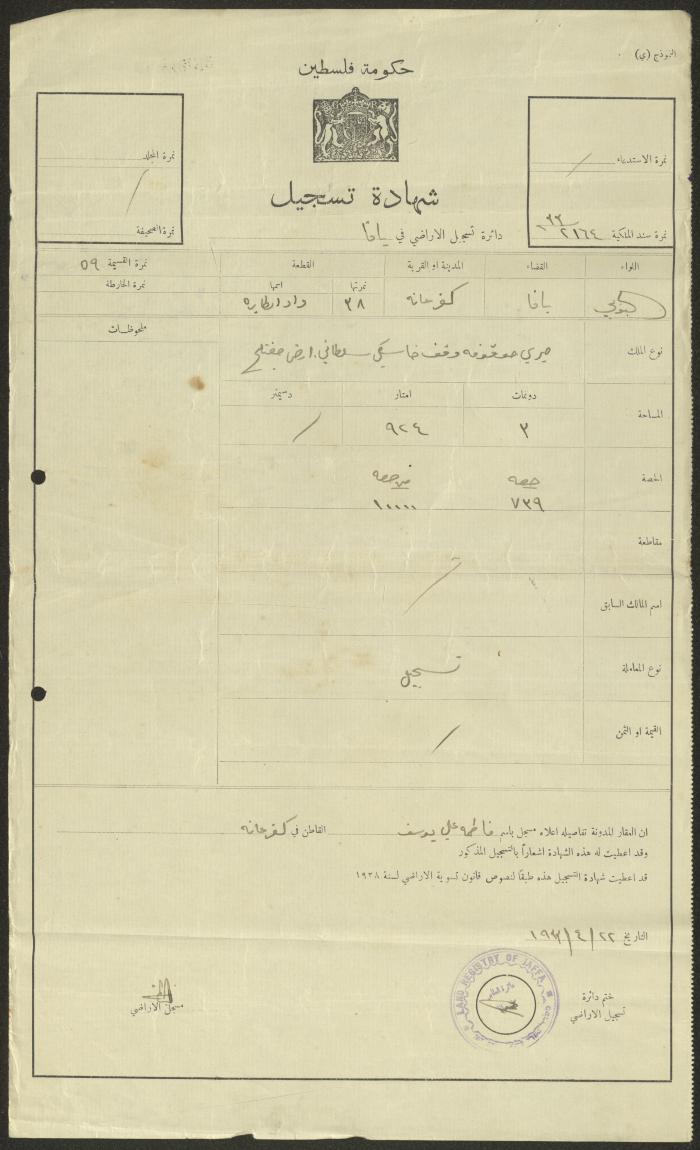 النموذج (ي)
حكومة فلسطين
نمرة الاستدعاء
نمرة المجلد
شهادة تسجيل
نمرة سند الملكية ٢١٦٤
دائرة تسجيل الاراضي في يافا
نمرة الصحيفة
اللواء
القضاء
المدينة او القرية
القطعة
نمرة القسيمة ٥٩
نمرتها
اسمها
نمرة الخارطة
الجنوبي
يافا
كفرعانه
٣٨
ملحوظات
نوع الملك
ميري موقوفه وقف خاسكي سلطاني
المساحة
دونمات
امتار
دسيمتر
٣
٩٢٤
الحصة
حصه
من حصه
٧٣٩
١٠٠٠٠٠
مقاطعة
اسم المالك السابق
نوع المعاملة
تسجيل
القيمة او الثمن
ان العقار المدونة تفاصيله اعلاه مسجل باسم فاطمه علي يوسف القاطن في كفرعانه
وقد اعطيت له هذه الشهادة اشعاراً بالتسجيل المذكور
قد اعطيت شهادة التسجيل هذه طبقا لنصوص قانون تسوية الاراضي لسنة ١٩٢٨
التاريخ ٢٢/٤/
ختم دائرة
تسجيل الاراضي
LAND REGISTRY OF JAFFA
مسجل الاراضي